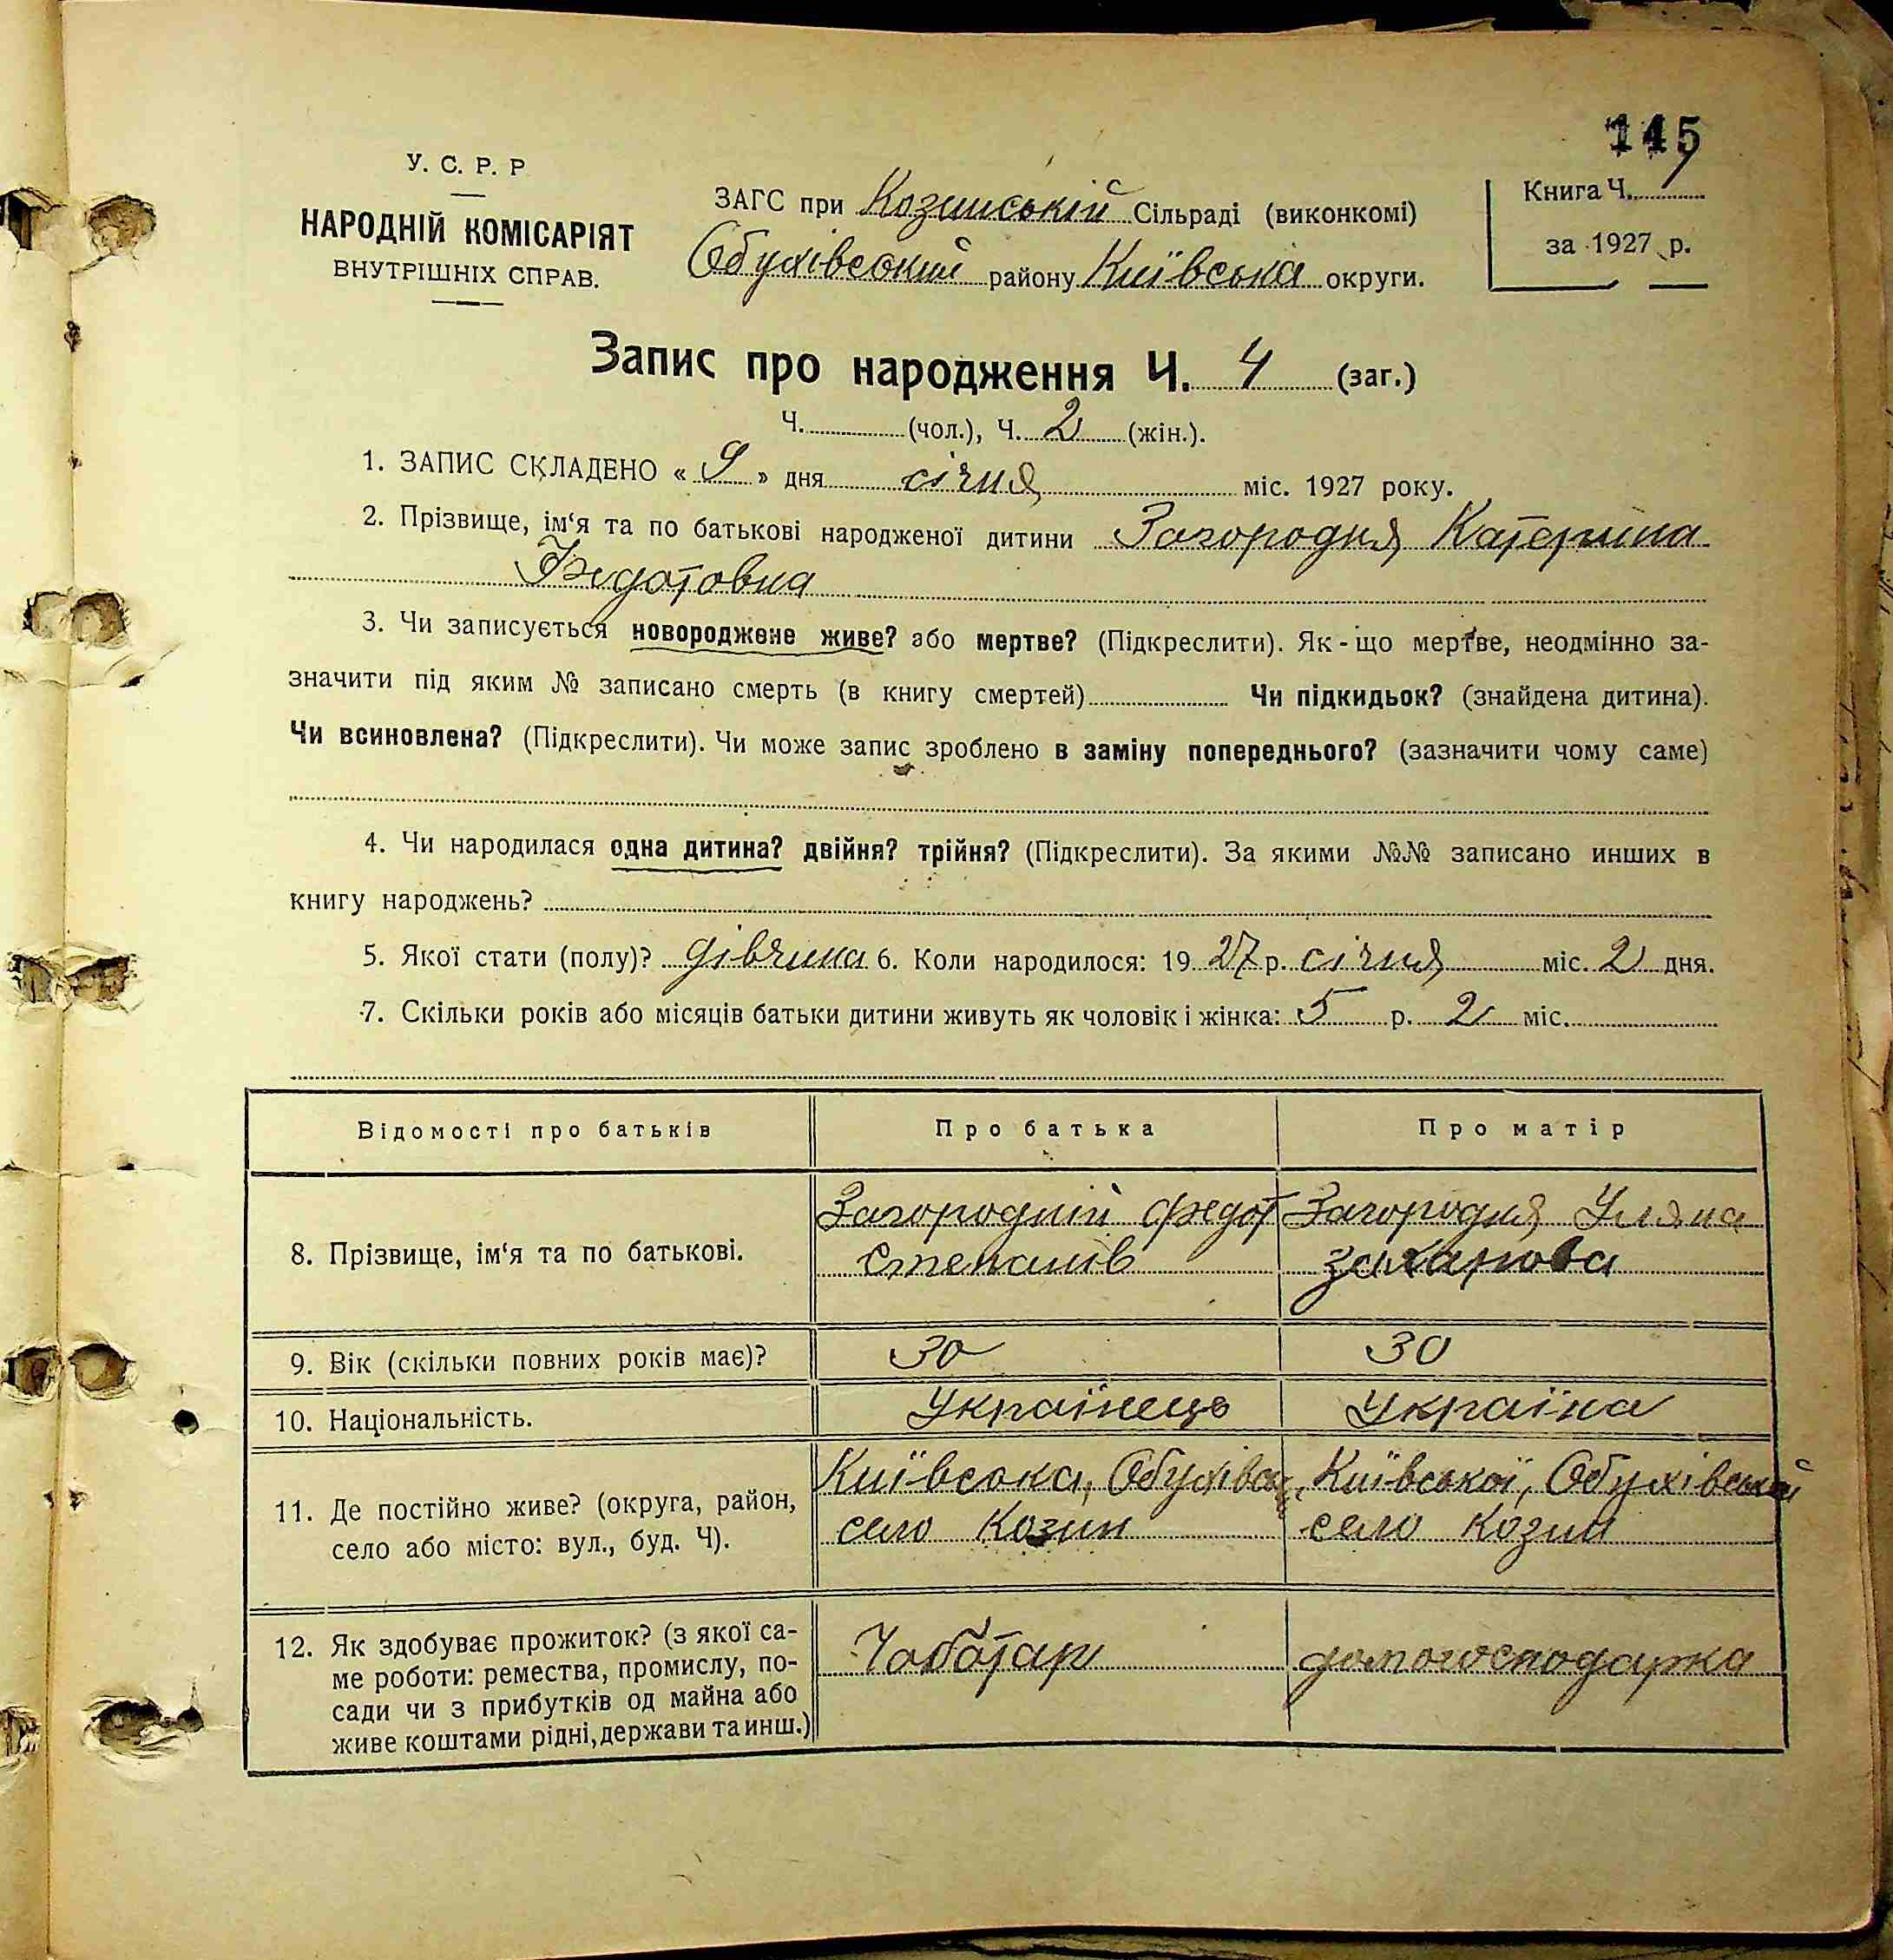 145
У. С. Р. Р
НАРОДНІЙ КОМІСАРІЯТ
ВНУТРІШНІХ СПРАВ.
ЗАГС при Козинській Сільраді (виконкомі)
Обухівский району Київська округи.
Книга Ч.
за 1927 р.
Запис про народження Ч. 4 (заг.)
Ч. (чол.), Ч. 2 (жін.).
1. ЗАПИС СКЛАДЕНО « 9 » дня січня міс. 1927 року.
2. Прізвище, ім‘я та по батькові народженої дитини Загородня Катерина
Федотовна
3. Чи записується новороджене живе? або мертве? (Підкреслити). Як-що мертве, неодмінно за-
значити під яким № записано смерть (в книгу смертей) Чи підкидьок? (знайдена дитина).
Чи всиновлена? (Підкреслити). Чи може запис зроблено в заміну попереднього? (зазначити чому саме)
4. Чи народилася одна дитина? двійня? трійня? (Підкреслити). За якими №№ записано инших в
книгу народжень?
5. Якої стати (полу)? дівчина 6. Коли народилося: 19 27 р. січня міс. 2 дня.
7. Скільки років або місяців батьки дитини живуть як чоловік і жінка: 5 р. 2 міс.
Відомості про батьків Про батька Про матір
8. Прізвище, ім‘я та по батькові.
Загородній Федот
Степанів
Загородня Уляна
Захарова
9. Вік (скільки повних років має)? 30 30
10. Національність. Українець Україна
11. Де постійно живе? (округа, район,
село або місто: вул., буд. Ч).
Київська, Обухівськ
село Козин
Київської, Обухівській
село Козин
12. Як здобуває прожиток? (з якої са-
ме роботи: ремества, промислу, по-
сади чи з прибутків од майна або
живе коштами рідні, держави та инш.)
Чоботарь
домогосподарка